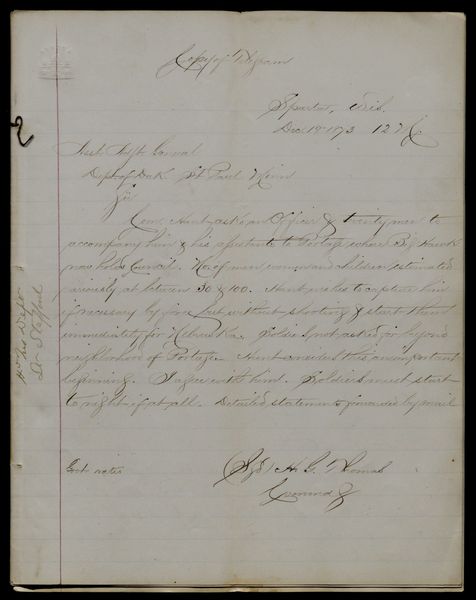 Copy of Telegram
Sparta, Wis.
Dec 19th 1873 12 M
Asst. Adjt General
Dept. of Dak St Paul Minn
Sir
Com. Hunt asks an Officer & twenty men to
accompany him & his assistants to Portage where Big Hawk
now holds Council. No. of men, women and children estimated
variously at between 30 & 100. Hunt wishes to capture him
if necessary by force but without shooting & start them
immediately for Nebraska. Soldiers not asked for beyond
neighborhood of Portage. Hunt considers this an important
beginning. I agree with him. Soldiers must start
to night if at all. Detailed statement forwarded by mail
(Sgd) H. G. Thomas
Commdg